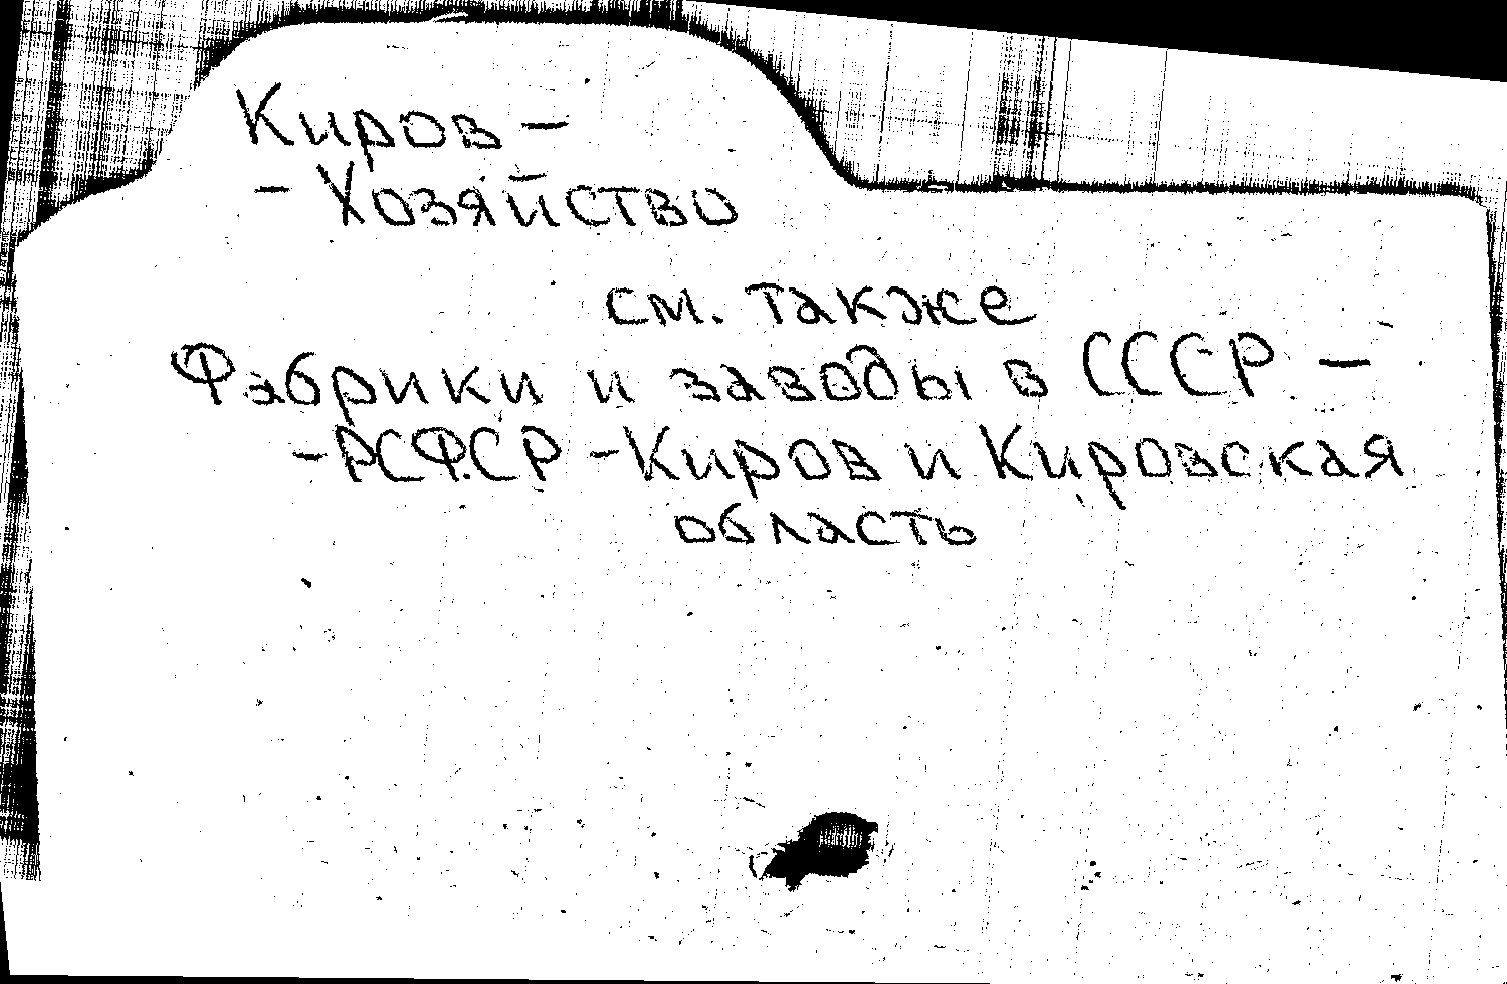 Киров –
– Хозяйство
см. также
Фабрики и заводы в СССР –
– РСФСР – Киров и Кировская
область